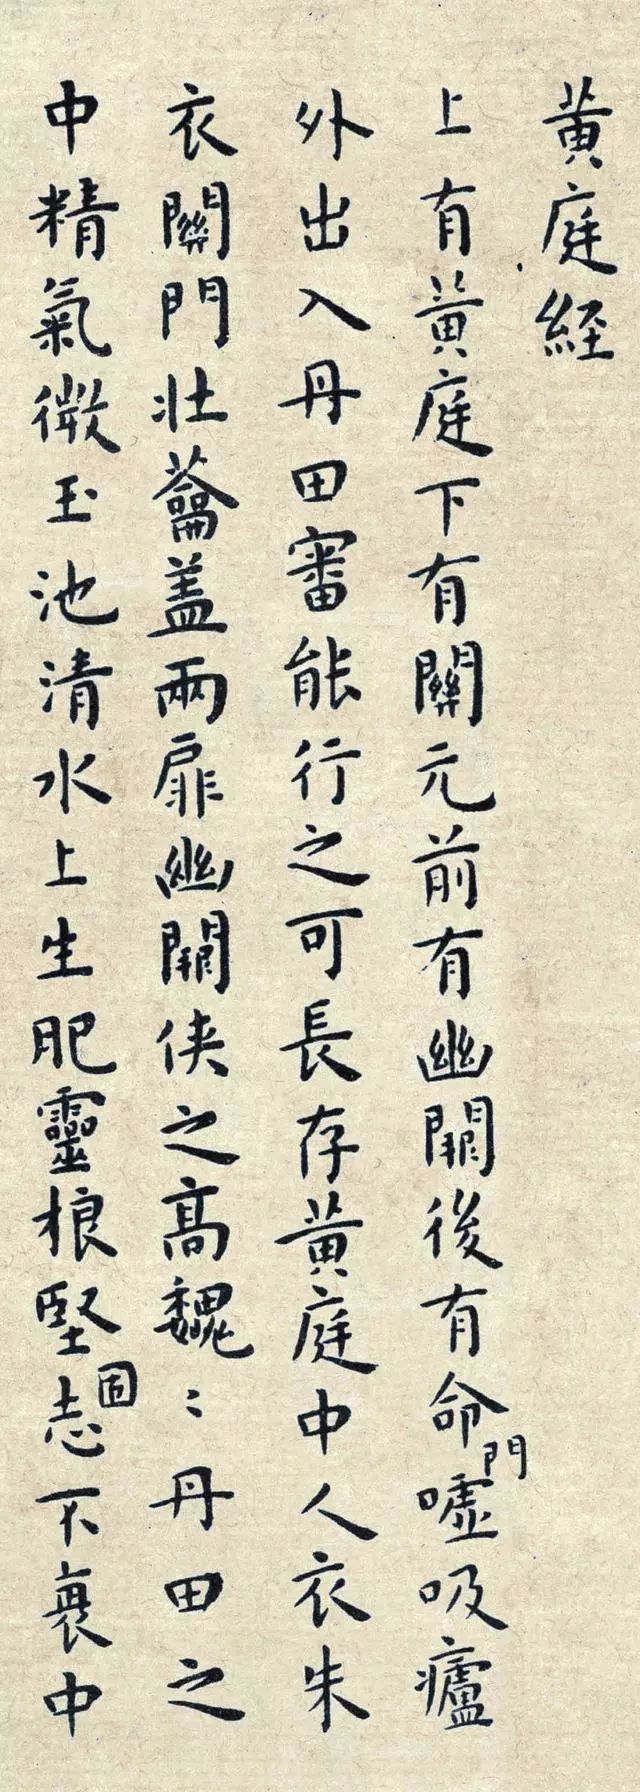 黄庭経
上有黄庭下有關元前有幽闕後有命門噓吸廬
外出入丹田審能行之可長存黄庭中人衣朱
衣關門壯蘥盖兩扉幽闕侠之高魏〻丹田之
中精氣微玉池清水上生肥靈根堅固志不衰中